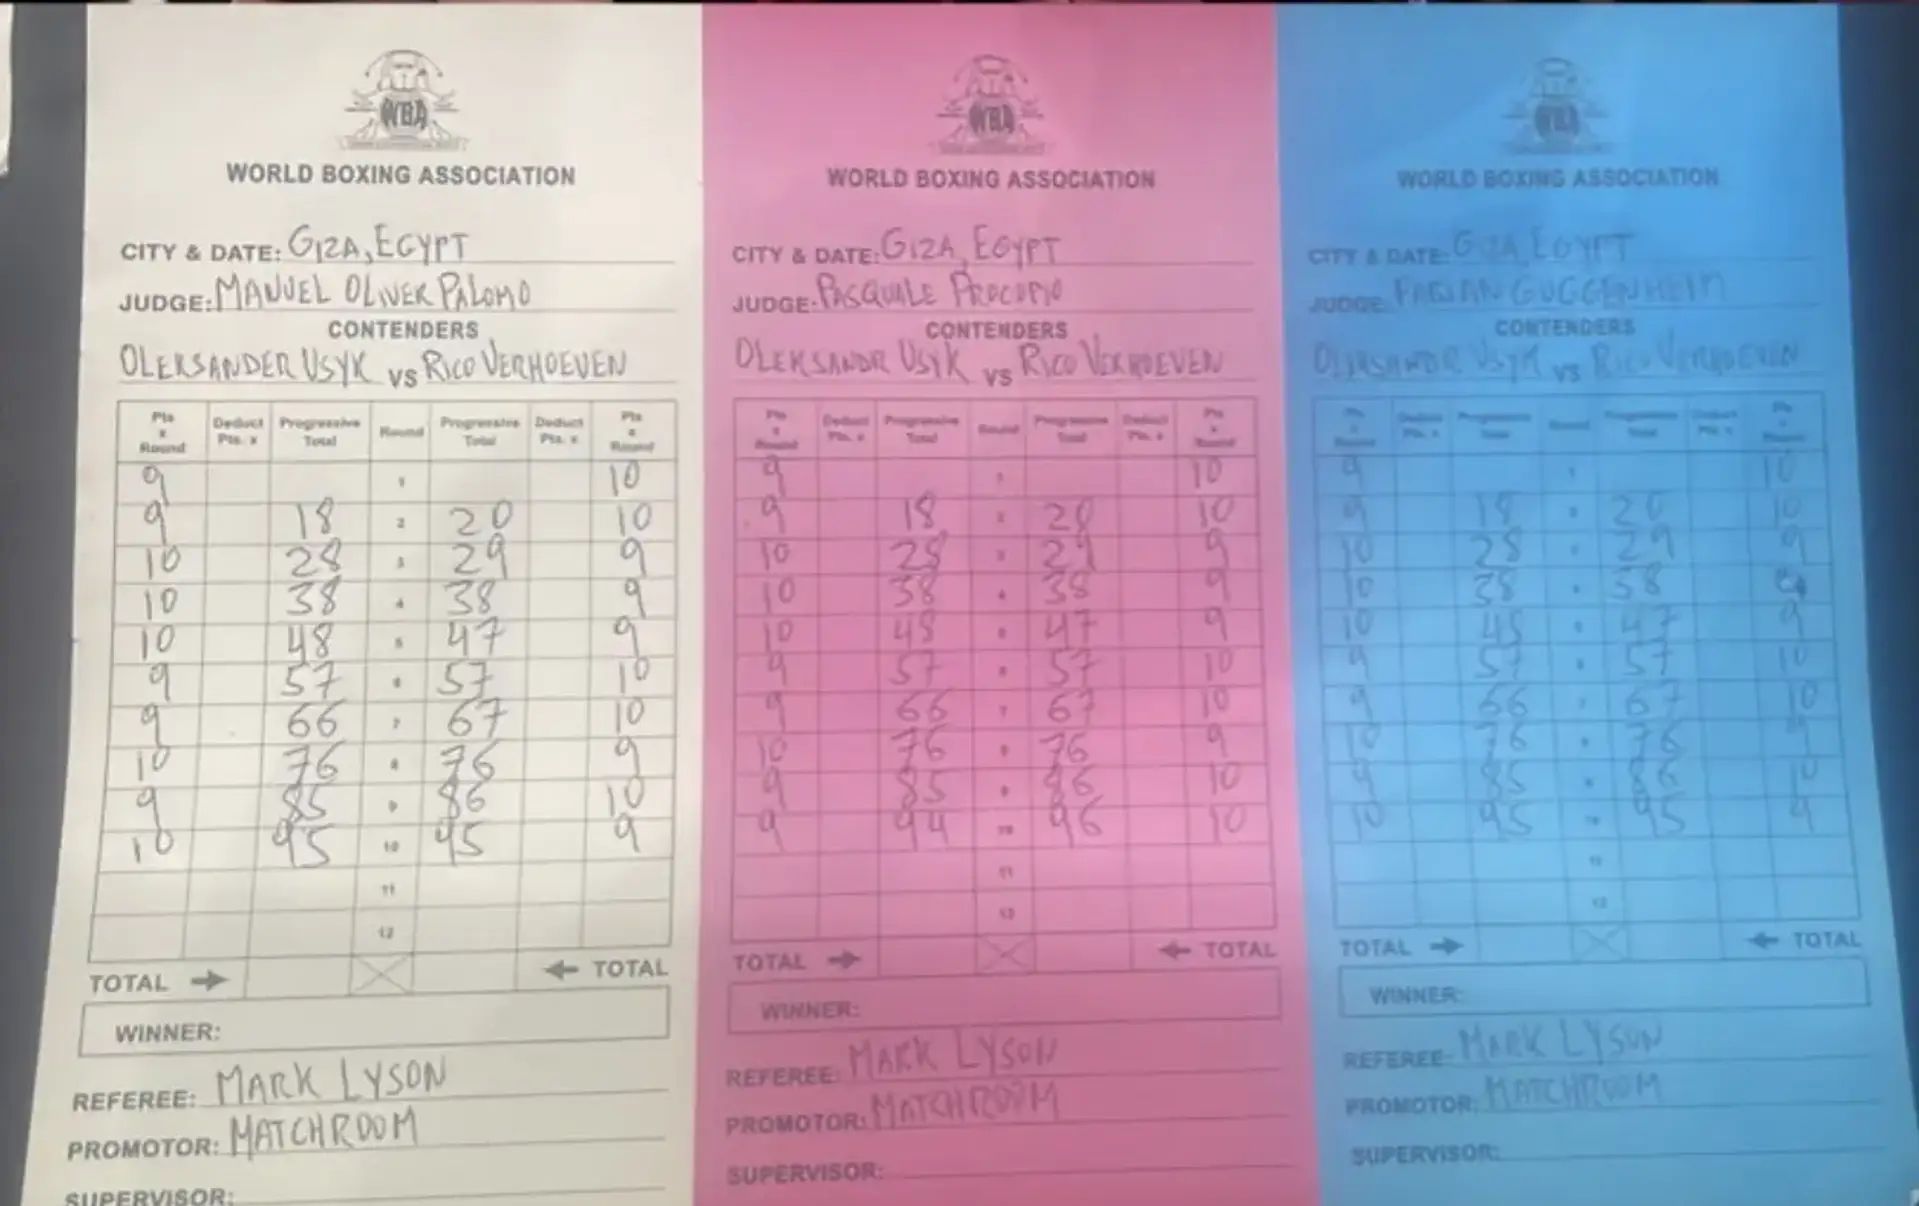 WBA
WORLD BOXING ASSOCIATION
CITY & DATE: GIZA, EGYPT
JUDGE: MANUEL OLIVER PALOMO
CONTENDERS
OLEKSANDER USYK VS RICO VERHOEVEN
Pts x Round Deduct Pts. x Progressive Total Round Progressive Total Deduct Pts. x Pts x Round
9 1 10
9 18 2 20 10
10 28 3 29 9
10 38 4 38 9
10 48 5 47 9
9 57 6 57 10
9 66 7 67 10
10 76 8 76 9
9 85 9 86 10
10 95 10 95 9
11
12
TOTAL → ← TOTAL
WINNER:
REFEREE: MARK LYSON
PROMOTOR: MATCHROOM
SUPERVISOR:
WBA
WORLD BOXING ASSOCIATION
CITY & DATE: GIZA, EGYPT
JUDGE: PASQUALE PROCOPIO
CONTENDERS
OLEKSANDR USYK VS RICO VERHOEVEN
Pts x Round Deduct Pts. x Progressive Total Round Progressive Total Deduct Pts. x Pts x Round
9 1 10
9 18 2 20 10
10 28 3 29 9
10 38 4 38 9
10 48 5 47 9
9 57 6 57 10
9 66 7 67 10
10 76 8 76 9
9 85 9 86 10
9 94 10 96 10
11
12
TOTAL → ← TOTAL
WINNER:
REFEREE: MARK LYSON
PROMOTOR: MATCHROOM
SUPERVISOR:
WBA
WORLD BOXING ASSOCIATION
CITY & DATE: GIZA, EGYPT
JUDGE: FABIAN GUGGENHEIM
CONTENDERS
OLEKSANDR USYK VS RICO VERHOEVEN
Pts x Round Deduct Pts. x Progressive Total Round Progressive Total Deduct Pts. x Pts x Round
9 1 10
9 18 20 10
10 28 29 9
10 38 38 9
10 48 47 9
9 57 57 10
9 66 67 10
10 76 76 9
9 85 86 10
10 95 10 95 9
12
TOTAL → ← TOTAL
WINNER:
REFEREE: MARK LYSON
PROMOTOR: MATCHROOM
SUPERVISOR: